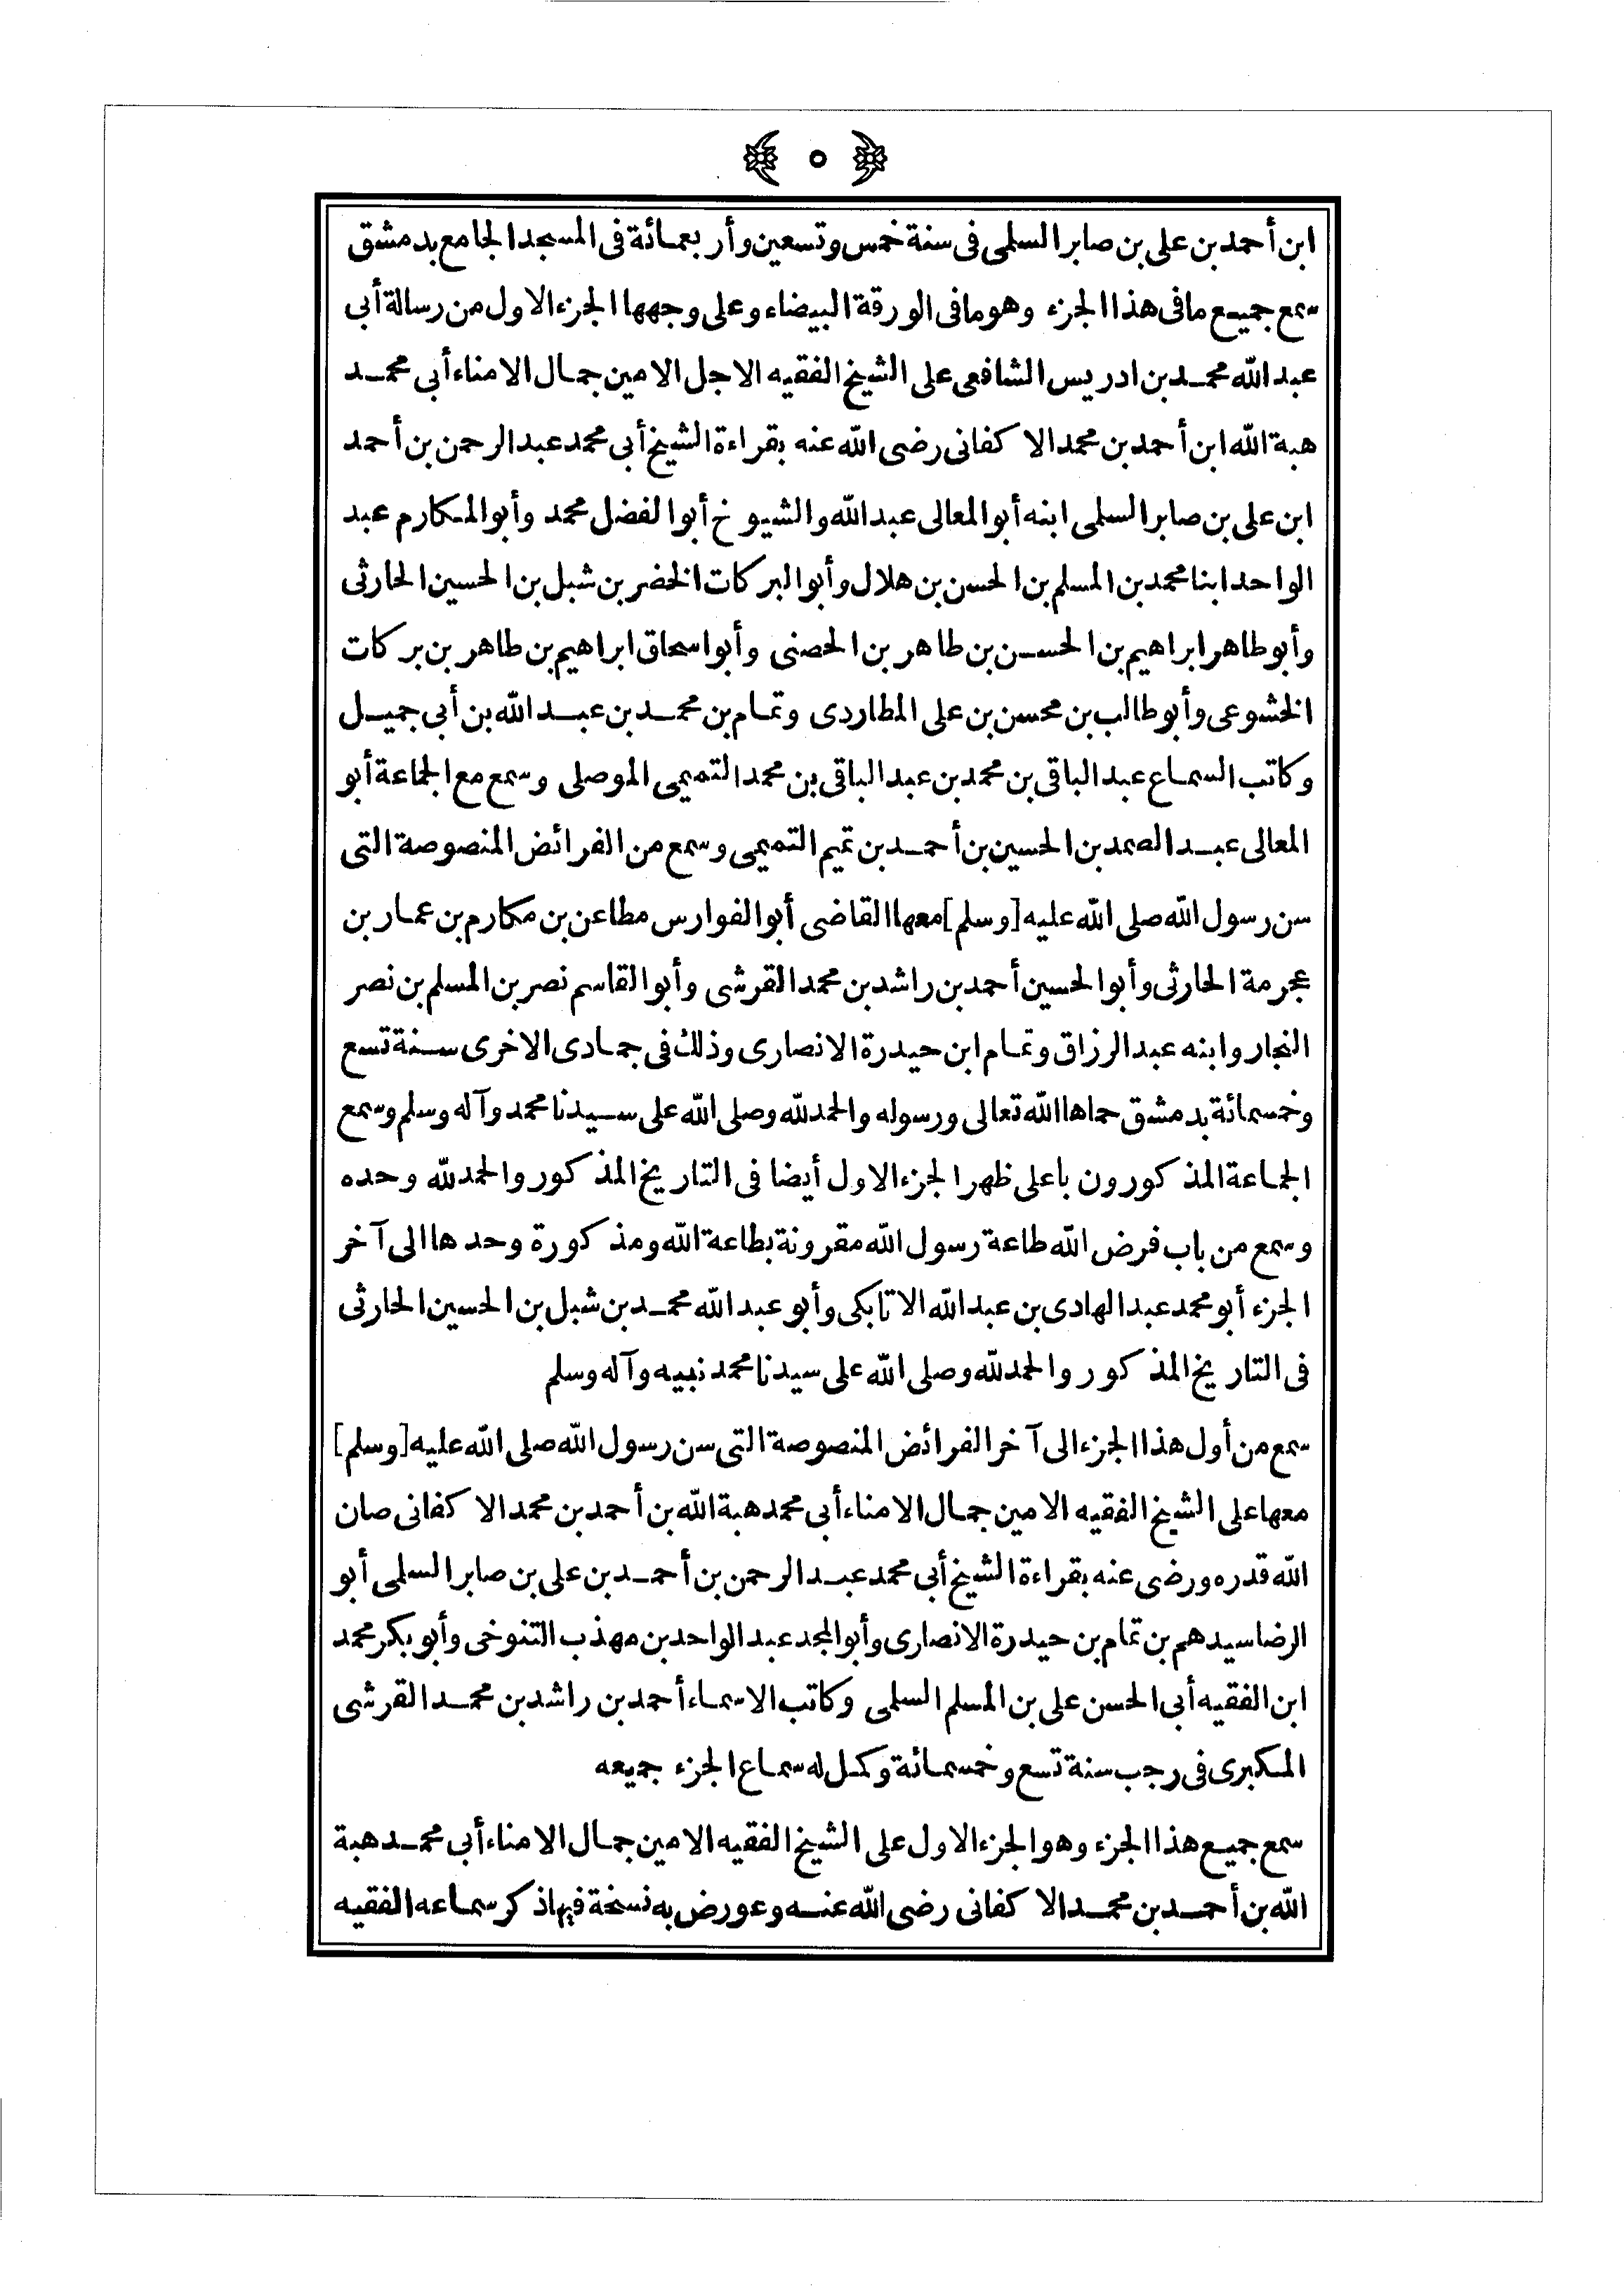 ﴿ ٥ ﴾
ابن أحمد بن على بن صابر السلمى فى سنة خمس وتسعين وأربعمائة فى المسجد الجامع بدمشق
سمع جميع مافى هذا الجزء وهو مافى الورقة البيضاء وعلى وجهها الجزء الاول من رسالة أبى
عبد الله محمد بن ادريس الشافعى على الشيخ الفقيه الاجل الامين جمال الامناء أبى محمد
هبة الله ابن أحمد بن محمد الاكفانى رضى الله عنه بقراءة الشيخ أبى محمد عبد الرحمن بن أحمد
ابن على بن صابر السلمى ابنه أبو المعالى عبد الله والشيوخ أبو الفضل محمد وأبو المكارم عبد
الواحد ابنا محمد بن المسلم بن الحسن بن هلال وأبو البركات الخضر بن شبل بن الحسين الحارثى
وأبو طاهر ابراهيم بن الحسن بن طاهر بن الحصنى وأبو اسحاق ابراهيم بن طاهر بن بركات
الخشوعى وأبو طالب بن محسن بن على المطاردى وتمام بن محمد بن عبد الله بن أبى جميل
وكاتب السماع عبد الباقى بن محمد بن عبد الباقى بن محمد التميمى الموصلى وسمع مع الجماعة أبو
المعالى عبد الصمد بن الحسين بن أحمد بن تميم التميمى وسمع من الفرائض المنصوصة التى
سن رسول الله صلى الله عليه [وسلم] معها القاضى أبو الفوارس مطاعن بن مكارم بن عمار بن
عجرمة الحارثى وأبو الحسين أحمد بن راشد بن محمد القرشى وأبو القاسم نصر بن المسلم بن نصر
النجار وابنه عبد الرزاق وتمام ابن حيدرة الانصارى وذلك فى جمادى الاخرى سنة تسع
وخمسمائة بدمشق حماها الله تعالى ورسوله والحمد لله وصلى الله على سيدنا محمد وآله وسلم وسمع
الجماعة المذكورون باعلى ظهر الجزء الاول أيضا فى التاريخ المذكور والحمد لله وحده
وسمع من باب فرض الله طاعة رسول الله مقرونة بطاعة الله ومذكورة وحدها الى آخر
الجزء أبو محمد عبد الهادى بن عبد الله الاتابكى وأبو عبد الله محمد بن شبل بن الحسين الحارثى
فى التاريخ المذكور والحمد لله وصلى الله على سيدنا محمد نبيه وآله وسلم
سمع من أول هذا الجزء الى آخر الفرائض المنصوصة التى سن رسول الله صلى الله عليه [وسلم]
معها على الشيخ الفقيه الامين جمال الامناء أبى محمد هبة الله بن أحمد بن محمد الاكفانى صان
الله قدره ورضى عنه بقراءة الشيخ أبى محمد عبد الرحمن بن أحمد بن على بن صابر السلمى أبو
الرضا سيدهم بن تمام بن حيدرة الانصارى وأبو المجد عبد الواحد بن مهذب التنوخى وأبو بكر محمد
ابن الفقيه أبى الحسن على بن المسلم السلمى وكاتب الاسماء أحمد بن راشد بن محمد القرشى
المكبرى فى رجب سنة تسع وخمسمائة وكمل له سماع الجزء جميعه
سمع جميع هذا الجزء وهو الجزء الاول على الشيخ الفقيه الامين جمال الامناء أبى محمد هبة
الله بن أحمد بن محمد الاكفانى رضى الله عنه وعورض به نسخة فيها ذكر سماعه الفقيه